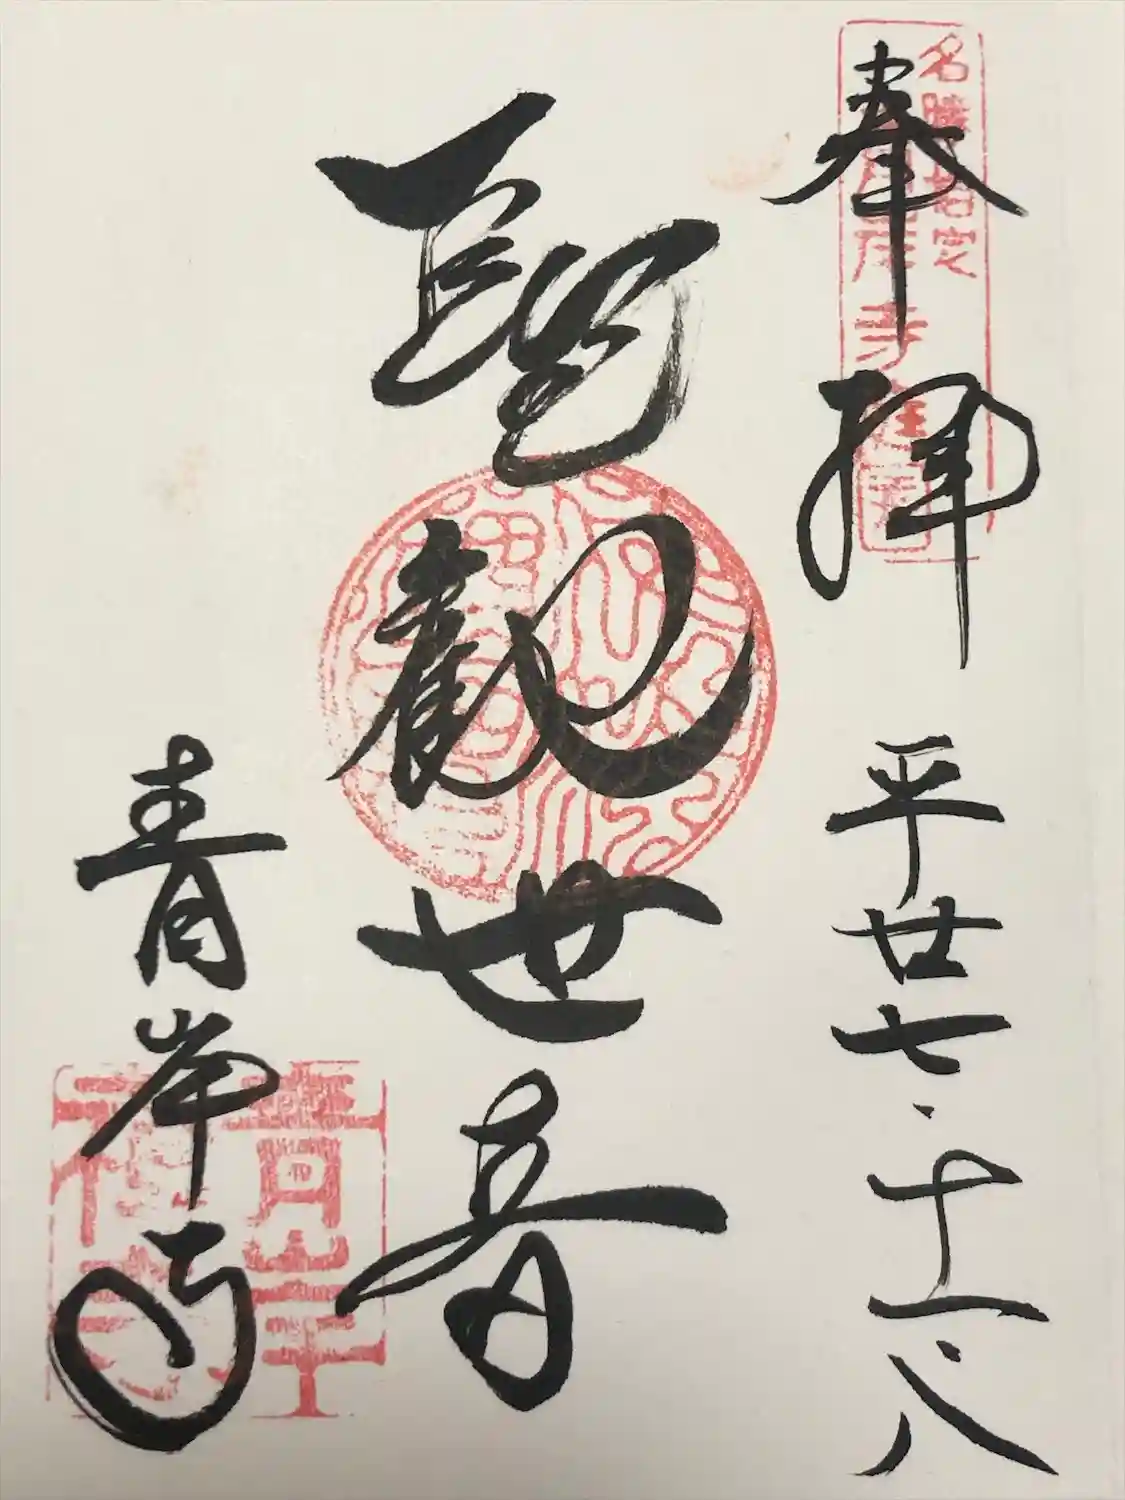 奉拝 平廿七・十一・八
名勝指定
青岸寺庭園
聖観世音
青岸寺